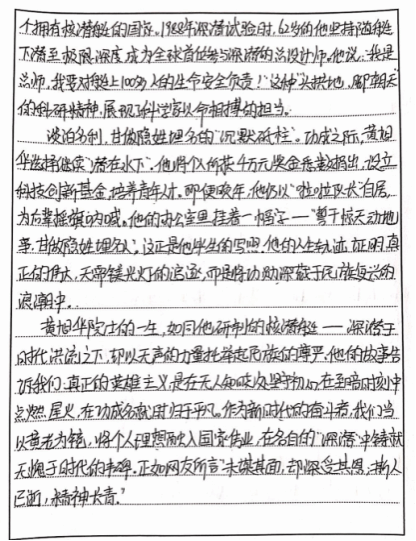 个拥有核潜艇的国家。1988年深潜试验时，62岁的他坚持随艇
下潜至极限深度，成为全球首位参与深潜的总设计师。他说："我是
总师，我要对艇上100多人的生命安全负责！"这种"头拱地、脚朝天"
的科研精神，展现了科学家以命相搏的担当。
淡泊名利，甘做隐姓埋名的"沉默砥柱"。功成之际，黄旭
华选择继续"潜在水下"。他将个人所获千万元奖金悉数捐出，设立
科技创新基金，培养青年人才。即便晚年，他仍以"啦啦队长"自居，
为后辈摇旗呐喊。他的办公室里挂着一幅字——"誓干惊天动地
事，甘做隐姓埋名人"，这正是他毕生的写照。他的人生轨迹证明：真
正的伟大，无需镁光灯的追逐，而是将功勋深藏于民族复兴的
浪潮中。
黄旭华院士的一生，如同他研制的核潜艇——深潜于
时代洪流之下，却以无声的力量托举起民族的尊严。他的故事告
诉我们：真正的英雄主义，是在无人知晓处坚守初心，在至暗时刻中
点燃星火，在功成名就时归于平凡。作为新时代的奋斗者，我们当
以黄老为镜，将个人理想融入国家伟业，在各自的"深潜"中铸就
无愧于时代的丰碑。正如网友所言："未谋其面，却深受其恩；斯人
已逝，精神长青。"